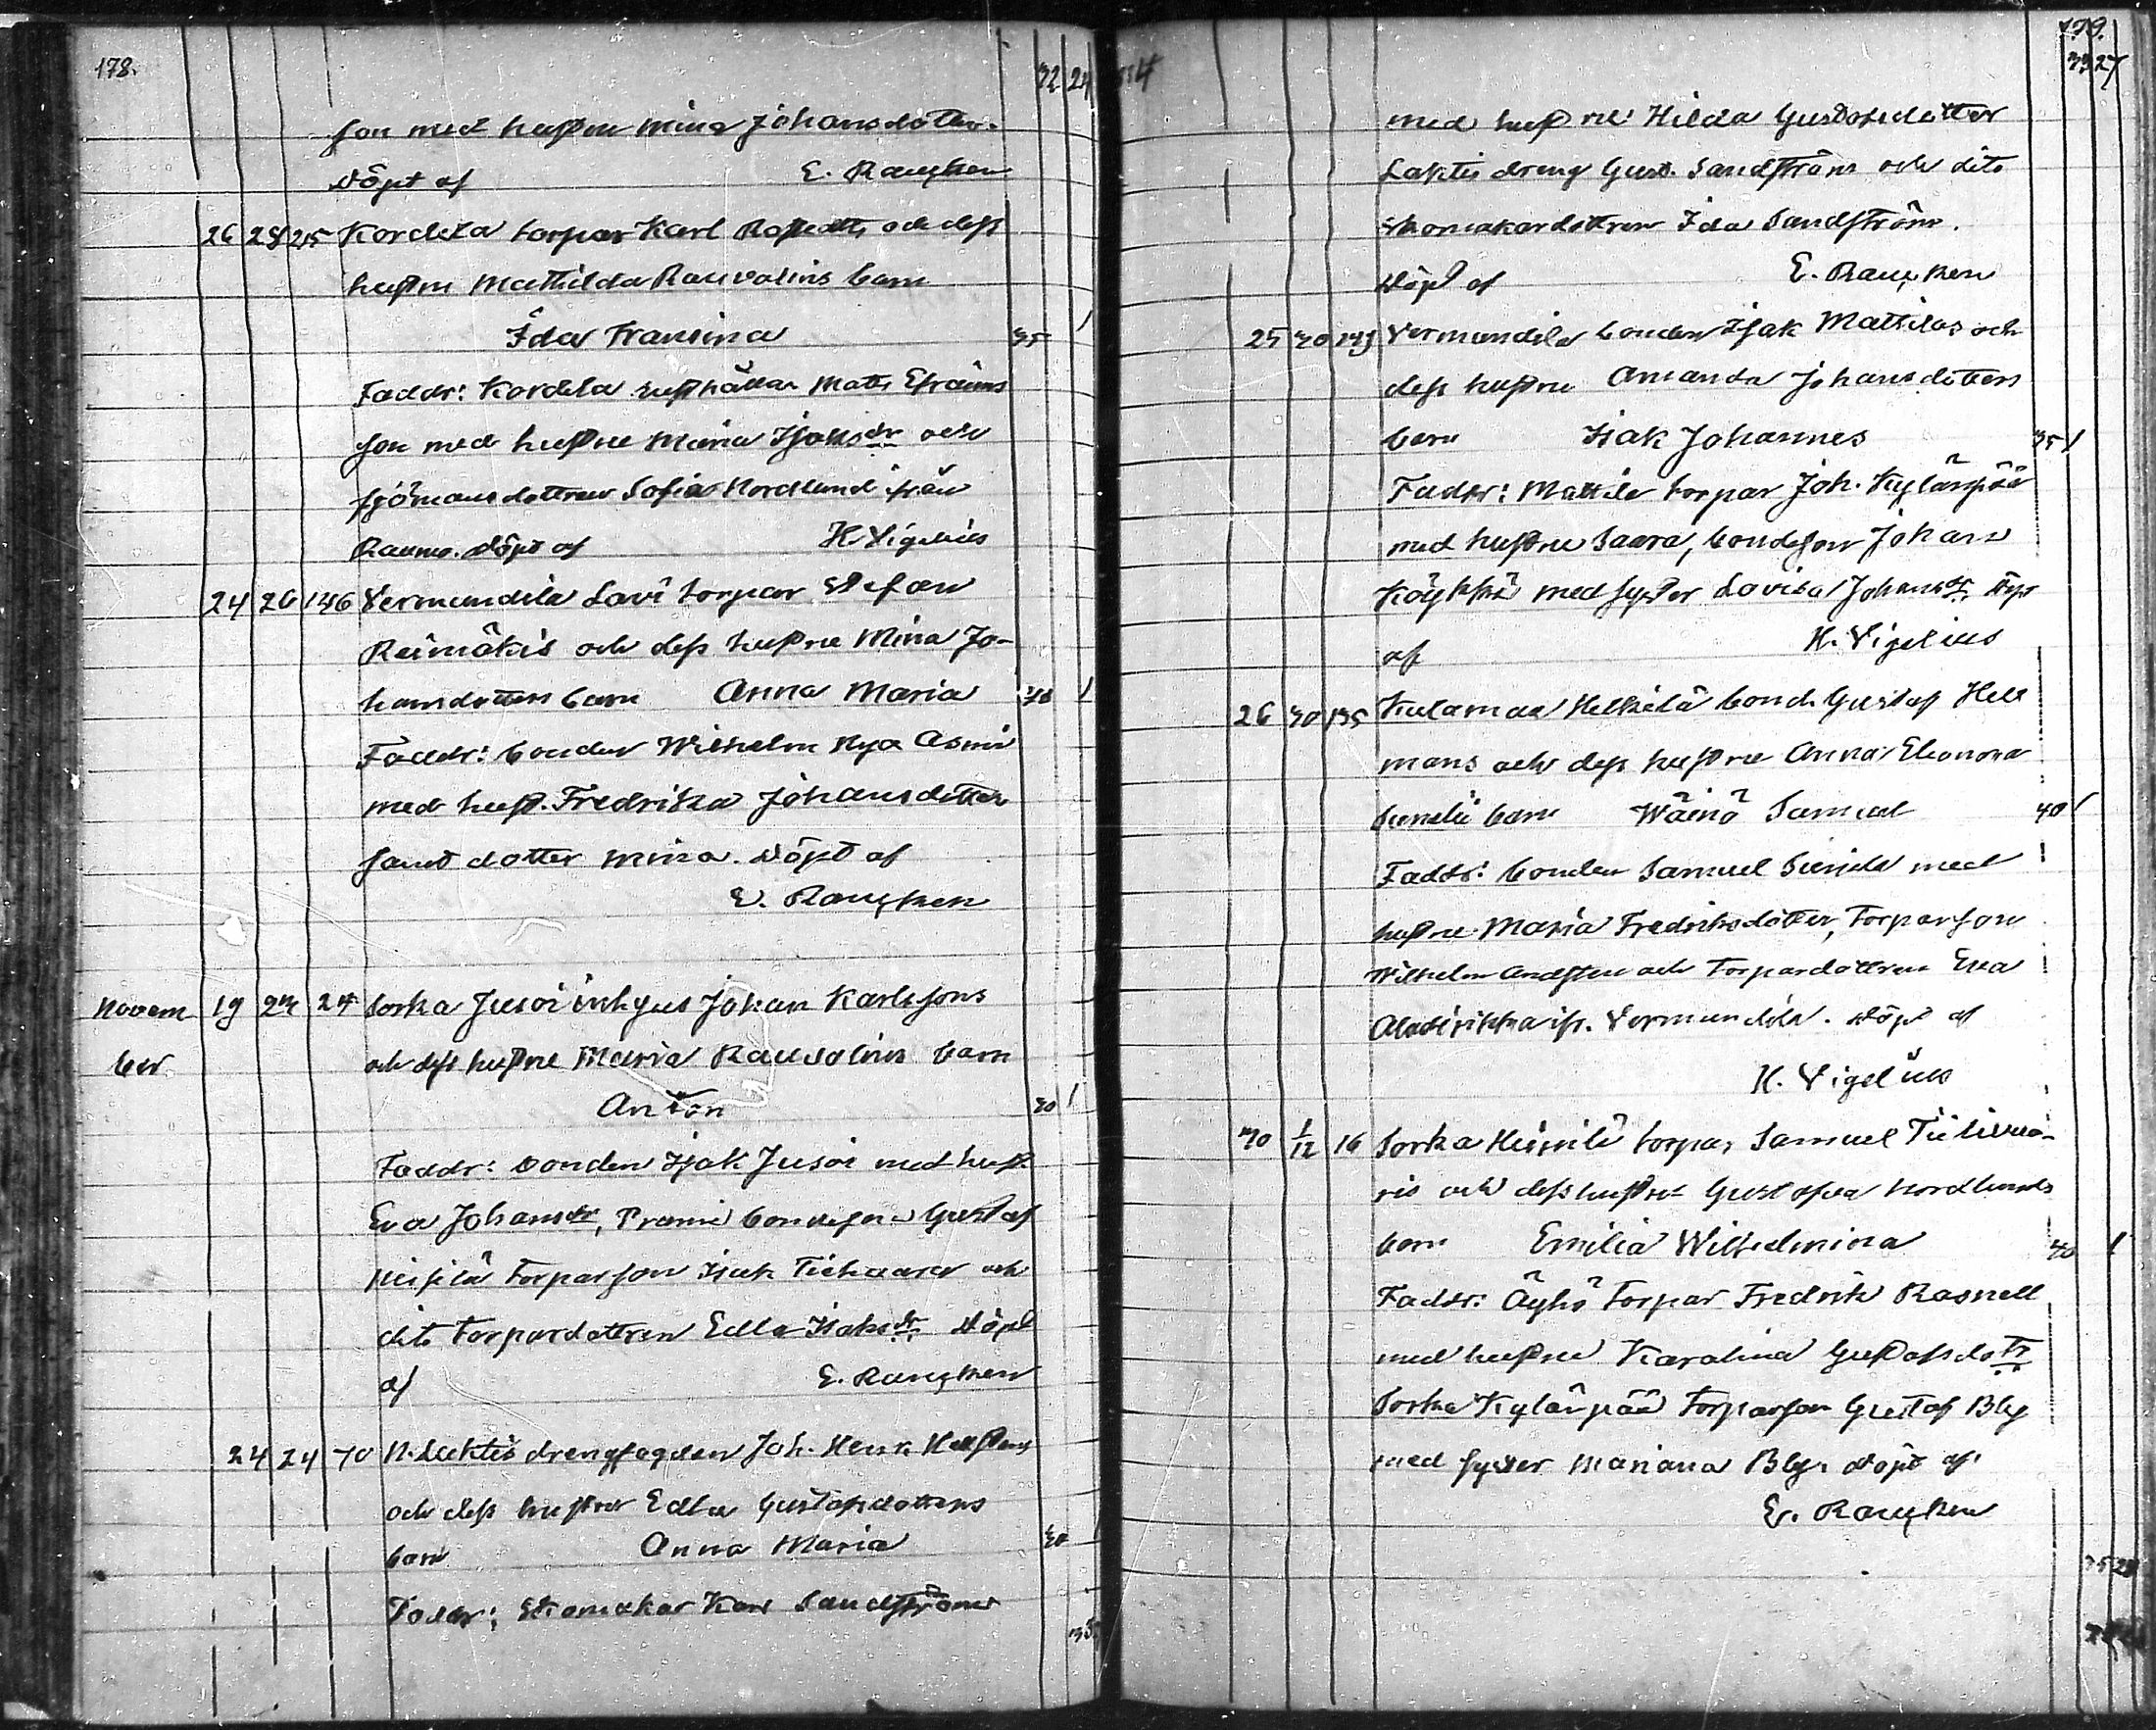 178.
32 24
son med hustru Mina Johansdotter.
Döpt af E. Rancken
26 28 25 Kordela torpar Karl Rostedts och dess
hustru Mathilda Rauvolins barn
Ida Fransina 35 1
Faddr: Kordela husthållar Matts Efraims
son med hustru Maria Isaksdr och
sjömansdottren Sofia Nordlund från
Raumo. Döpt af K. Vigelius
24 26 146 Vermundila Lavi torpar Stefan
Reimäkis och dess hustru Mina Jo-
hansdotters barn Anna Maria 40 1
Faddr: bonden Wilhelm Nya Asmi
med hust. Fredrika Johansdotter
samt dotter Mina. Döpt af
E. Rancken
Novem 19 24 Sorka Jusoi inhyses Johan Karlssons
ber och dess hustru Maria Rauvolins barn
Anton 30 1
Faddr: bonden Isak Jusoi med hust.
Eva Johansdr, bondeson Gustaf
torparson Isak och
dito torpardottren Edla Isaksdr Döpt
af E. Rancken
24 24 70 N. Laktis Joh. Henr.
och dess hustru Edla Gustafsdotters
barn Anna Maria 30 1
Faddr: Skomakar Karl Sandström
33
179.
33 27
med hustru Hilda Gustafsdotter
Laktis dreng Gust. Sandström och dito
skomakardottren Ida Sandström.
Döpt af E. Rancken
25 30 143 Vermundila bonden Isak Mattilas och
dess hustru Amanda Johansdotters
barn Isak Johannes 35 1
Faddr: Mattila torpar Joh. Kylänpää
med hustru Saara, bondeson Johan
Köykkä med syster Lovisa Johansdr. Döpt
af K. Vigelius
26 30 135 Kulamaa Heikkilä bond. Gustaf Hell
mans och dess hustru Anna Eleonora
barn Wäinö Samuel 40 1
Faddr: bonden Samuel med
hustru Maria Fredriksdotter, torparson
Wilhelm och torpardottren Eva
ifr. Vermundila. Döpt af
K. Vigelius
30 1/12 16 Sorka torpar Samuel Tiilivuo-
ris och dess hustru Gustafva Nordlunds
barn Emilia Wilhelmina 40 1
Faddr: Äyhö torpar Fredrik Rasnell
med hustru Karolina Gustafsdotr
Sorka Kylänpää torparson Gustaf Bly
med syster Mariana Bly. Döpt af
E. Rancken
35 28